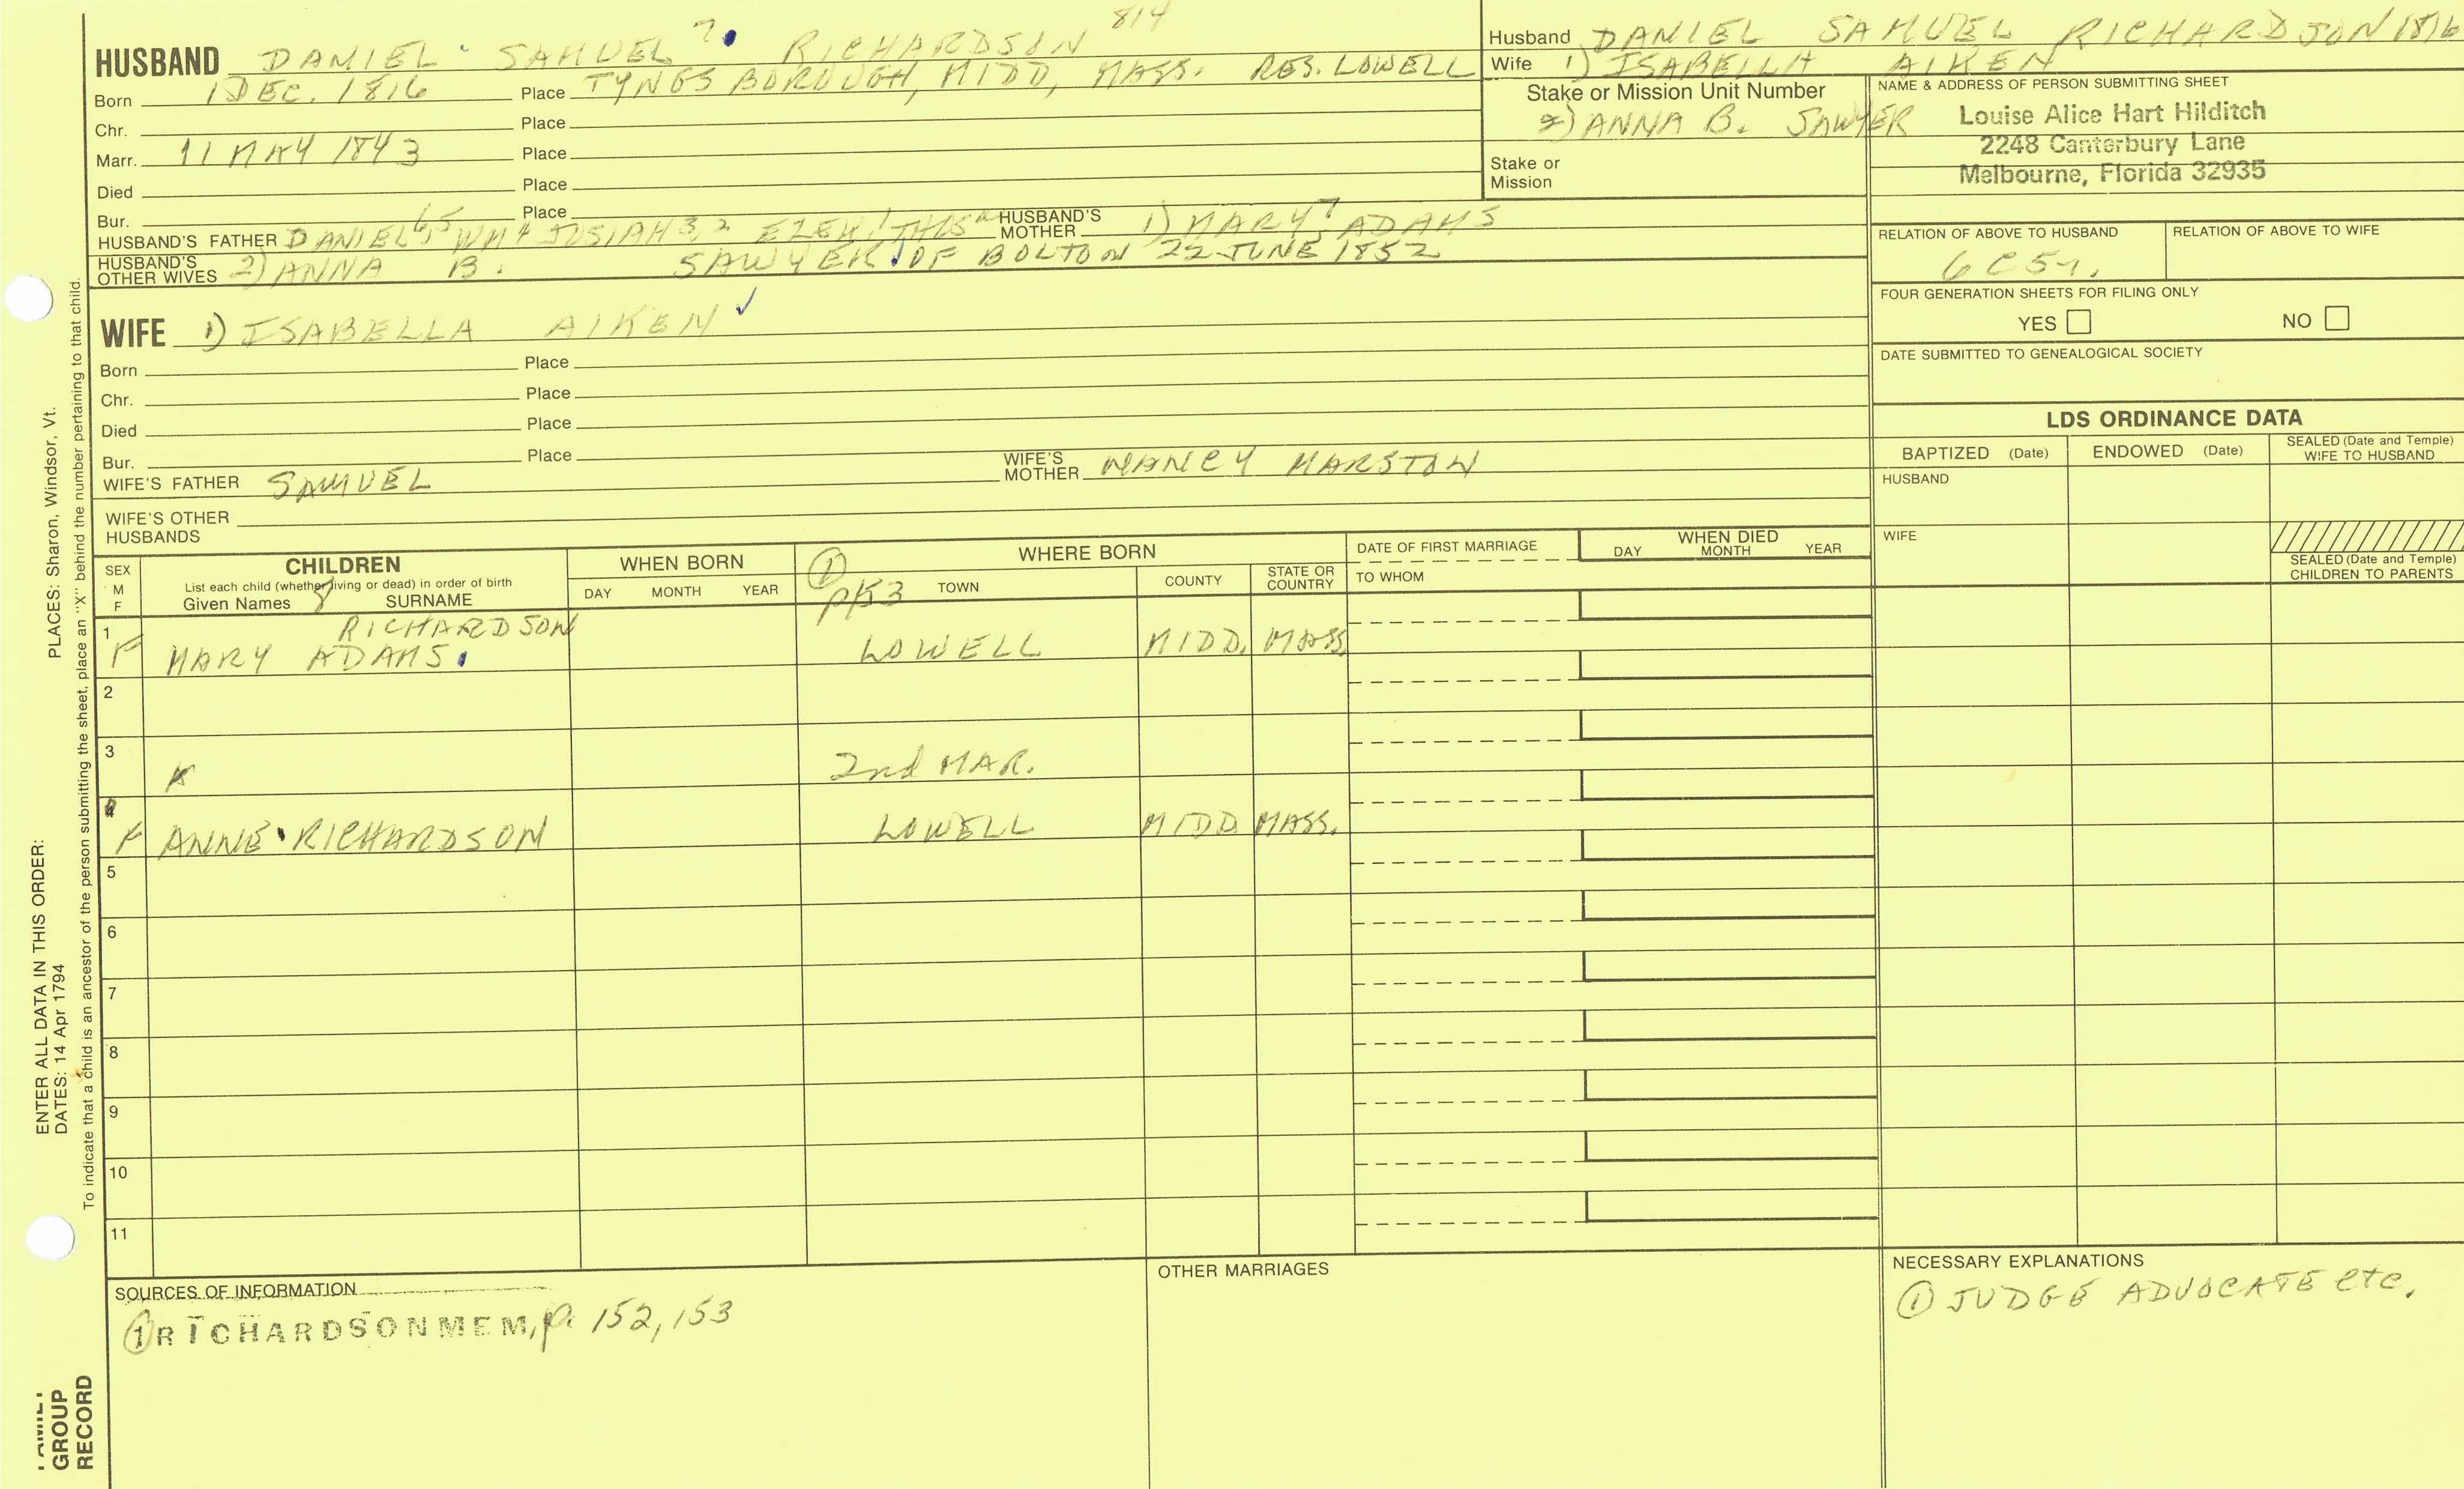 HUSBAND DANIEL SAMUEL 7 RICHARDSON 814
Born 1 DEC. 1816 Place TYNGSBOROUGH, MIDD, MASS. RES. LOWELL
Chr. Place
Marr. 11 MAY 1843 Place
Died Place
Bur. Place
HUSBAND'S FATHER DANIEL 6, 5 WM 4 JOSIAH 3, 2 EZEK 1 HUSBAND'S MOTHER 1) MARY 7 ADAMS
HUSBAND'S OTHER WIVES 2) ANNA B. SAWYER OF BOLTON 22 JUNE 1852
Husband DANIEL SAMUEL RICHARDSON 1816
Wife 1) ISABELLA AIKEN
Stake or Mission Unit Number
2) ANNA B. SAWYER
Stake or
Mission
NAME & ADDRESS OF PERSON SUBMITTING SHEET
Louise Alice Hart Hilditch
2248 Canterbury Lane
Melbourne, Florida 32935
RELATION OF ABOVE TO HUSBAND RELATION OF ABOVE TO WIFE
FOUR GENERATION SHEETS FOR FILING ONLY
YES NO
DATE SUBMITTED TO GENEALOGICAL SOCIETY
WIFE 1) ISABELLA AIKEN ✓
Born Place
Chr. Place
Died Place
Bur. Place
WIFE'S FATHER SAMUEL WIFE'S MOTHER NANCY MARSTON
WIFE'S OTHER
HUSBANDS
LDS ORDINANCE DATA
BAPTIZED (Date) ENDOWED (Date) SEALED (Date and Temple) WIFE TO HUSBAND
HUSBAND
WIFE
SEALED (Date and Temple)
CHILDREN TO PARENTS
SEX
M
F
CHILDREN
List each child (whether living or dead) in order of birth
Given Names 8 SURNAME
WHEN BORN
DAY MONTH YEAR
WHERE BORN
① p153 TOWN COUNTY STATE OR COUNTRY
DATE OF FIRST MARRIAGE
TO WHOM
WHEN DIED
DAY MONTH YEAR
1 RICHARDSON
F MARY ADAMS LOWELL MIDD. MASS.
2
3
2nd MAR.
4
F ANNE RICHARDSON LOWELL MIDD MASS.
5
6
7
8
9
10
11
SOURCES OF INFORMATION
① RICHARDSON MEM, p. 152, 153
OTHER MARRIAGES
NECESSARY EXPLANATIONS
① JUDGE ADVOCATE etc.
ENTER ALL DATA IN THIS ORDER:
DATES: 14 Apr 1794
PLACES: Sharon, Windsor, Vt.
To indicate that a child is an ancestor of the person submitting the sheet, place an "X" behind the number pertaining to that child.
GROUP
RECORD